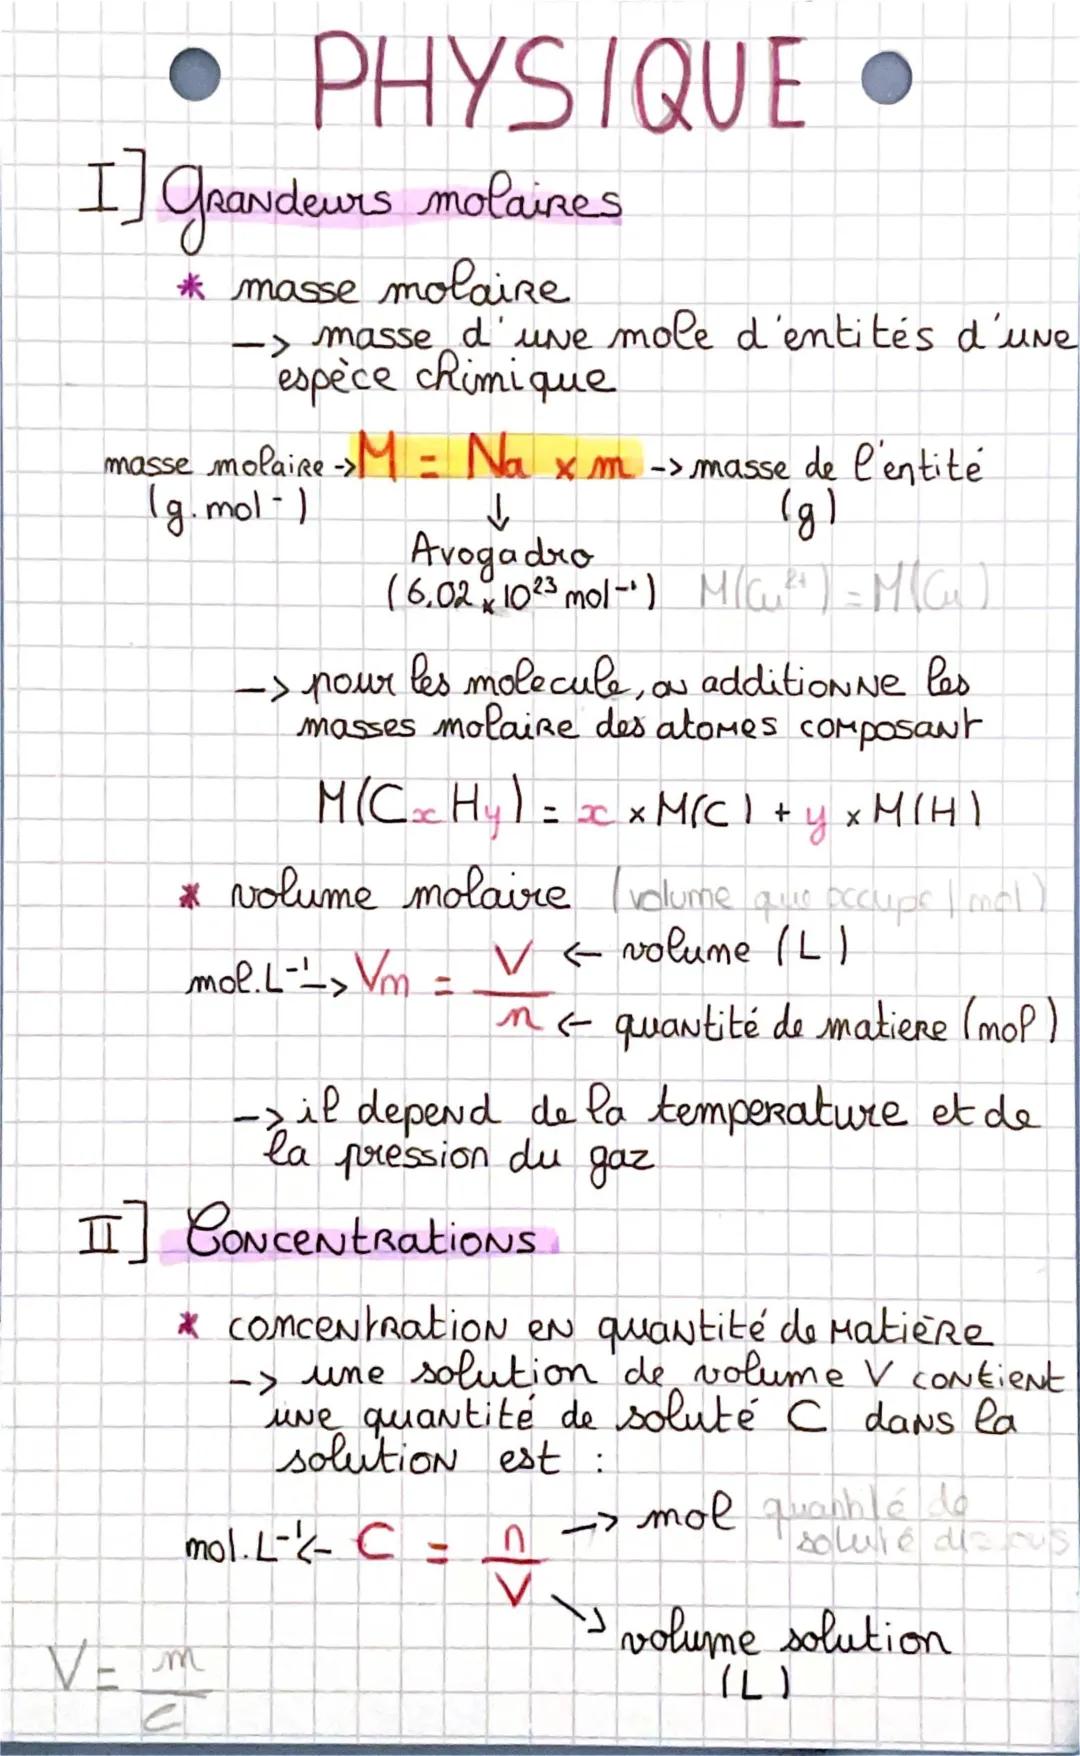 PHYSIQUE
I] Grandeurs molaires
* masse molaire
-> masse d'une mole d'entités d'une
espèce chimique
masse molaire -> M = Na x m -> masse de l'entité
(g.mol-) ↓ (g)
Avogadro
(6,02 x 10²³ mol-¹) M(Cu²⁺) = M(Cu)
-> pour les molecule, on additionne les
masses molaire des atomes composant
M(CxHy) = x × M(C) + y × M(H)
* volume molaire (volume que occupe 1 mol)
mol.L-¹-> Vm = V <- volume (L)
n <- quantité de matiere (mol)
-> il depend de la temperature et de
la pression du gaz
II] Concentrations
* concentration en quantité de matière
-> une solution de volume V contient
une quantité de soluté C dans la
solution est :
-> mol quantité de
soluté dissous
mol.L-¹<- C = n
V
volume solution
(L)
V = m
c